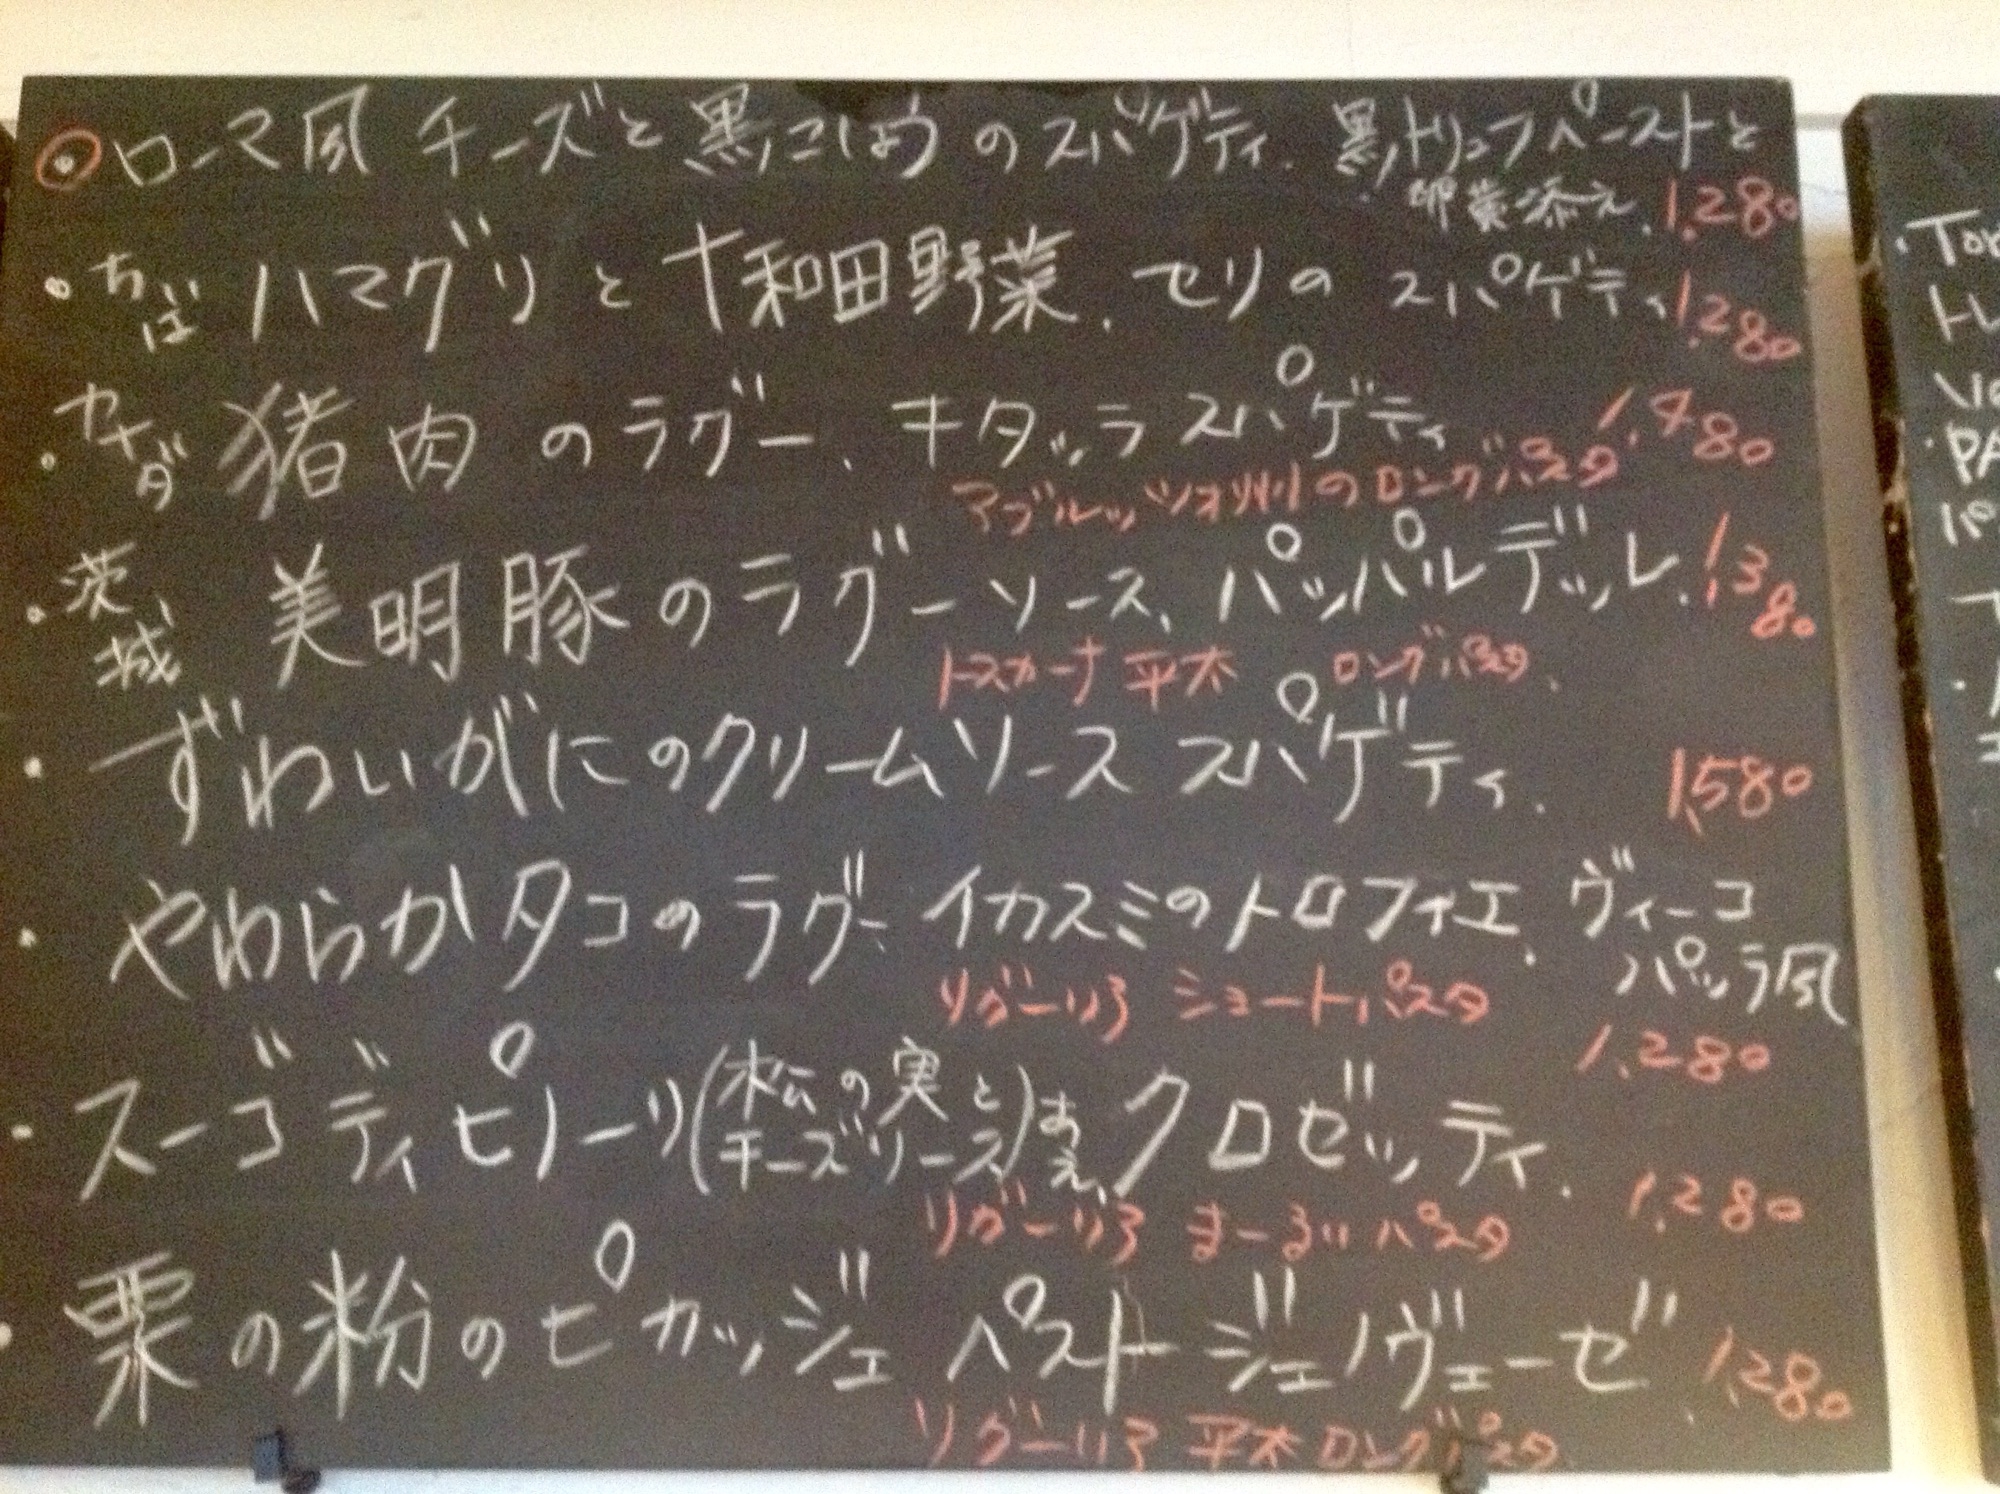 ローマ風 チーズと黒こしょうのスパゲティ. 黒トリュフペーストと
卵黄添え. 1,280
・ちば ハマグリと十和田野菜、セリの スパゲティ 1,280
・カナダ 猪肉のラグー、キタッラスパゲティ 1,480
アブルッツォ州のロングパスタ
・茨城 美明豚のラグーソース、パッパルデッレ. 1,380
トスカーナ 平太 ロングパスタ.
・ずわいがにのクリームソース スパゲティ. 1,580
・やわらかタコのラグー イカスミのトロフィエ、ヴィーコ
パッラ風
リグーリア ショートパスタ 1,280
・スーゴディピノーリ(松の実とチーズソース)あえ、クロゼッティ.
リグーリア まーるいパスタ 1,280
・栗の粉のピカッジェ ペストジェノヴェーゼ. 1,280
リグーリア 平太ロングパスタ
Tou
PA